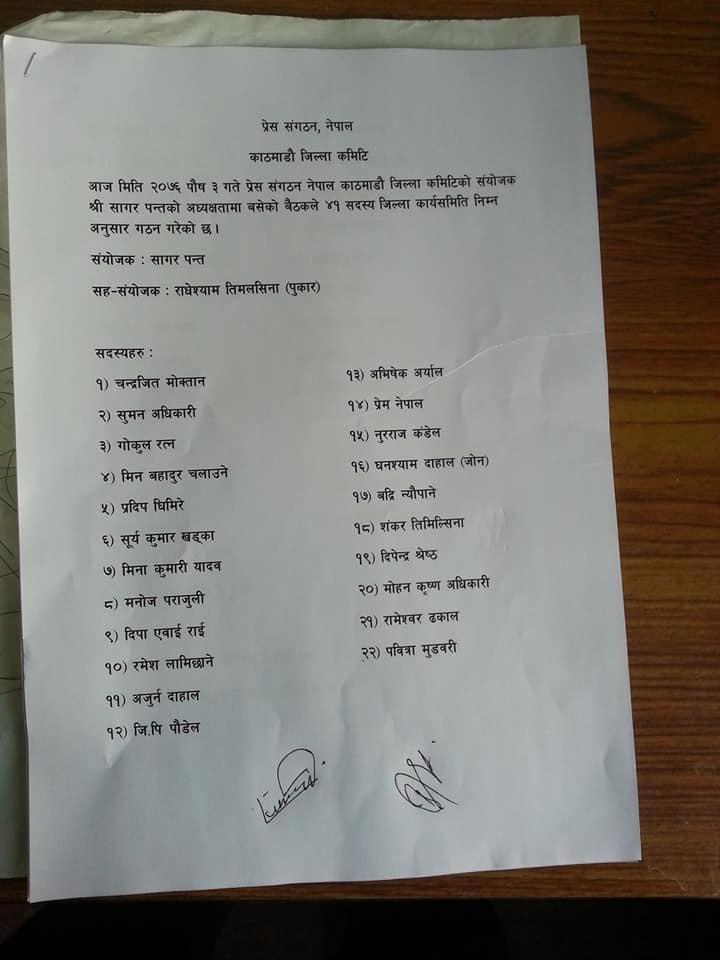 प्रेस संगठन, नेपाल
काठमाडौ जिल्ला कमिटि
आज मिति २०७६ पौष ३ गते प्रेस संगठन नेपाल काठमाडौ जिल्ला कमिटिको संयोजक
श्री सागर पन्तको अध्यक्षतामा बसेको बैठकले ४१ सदस्य जिल्ला कार्यसमिति निम्न
अनुसार गठन गरेको छ ।
संयोजक : सागर पन्त
सह-संयोजक : राधेश्याम तिमलसिना (पुकार)
सदस्यहरु :
१) चन्द्रजित मोक्तान
२) सुमन अधिकारी
३) गोकुल रत्न
४) मिन बहादुर चलाउने
५) प्रदिप घिमिरे
६) सूर्य कुमार खड्का
७) मिना कुमारी यादव
८) मनोज पराजुली
९) दिपा एवाई राई
१०) रमेश लामिछाने
११) अजुर्न दाहाल
१२) जि.पि पौडेल
१३) अभिषेक अर्याल
१४) प्रेम नेपाल
१५) नुरराज कंडेल
१६) घनश्याम दाहाल (जोन)
१७) बद्रि न्यौपाने
१८) शंकर तिमिल्सिना
१९) दिपेन्द्र श्रेष्ठ
२०) मोहन कृष्ण अधिकारी
२१) रामेश्वर ढकाल
२२) पवित्रा मुडवरी